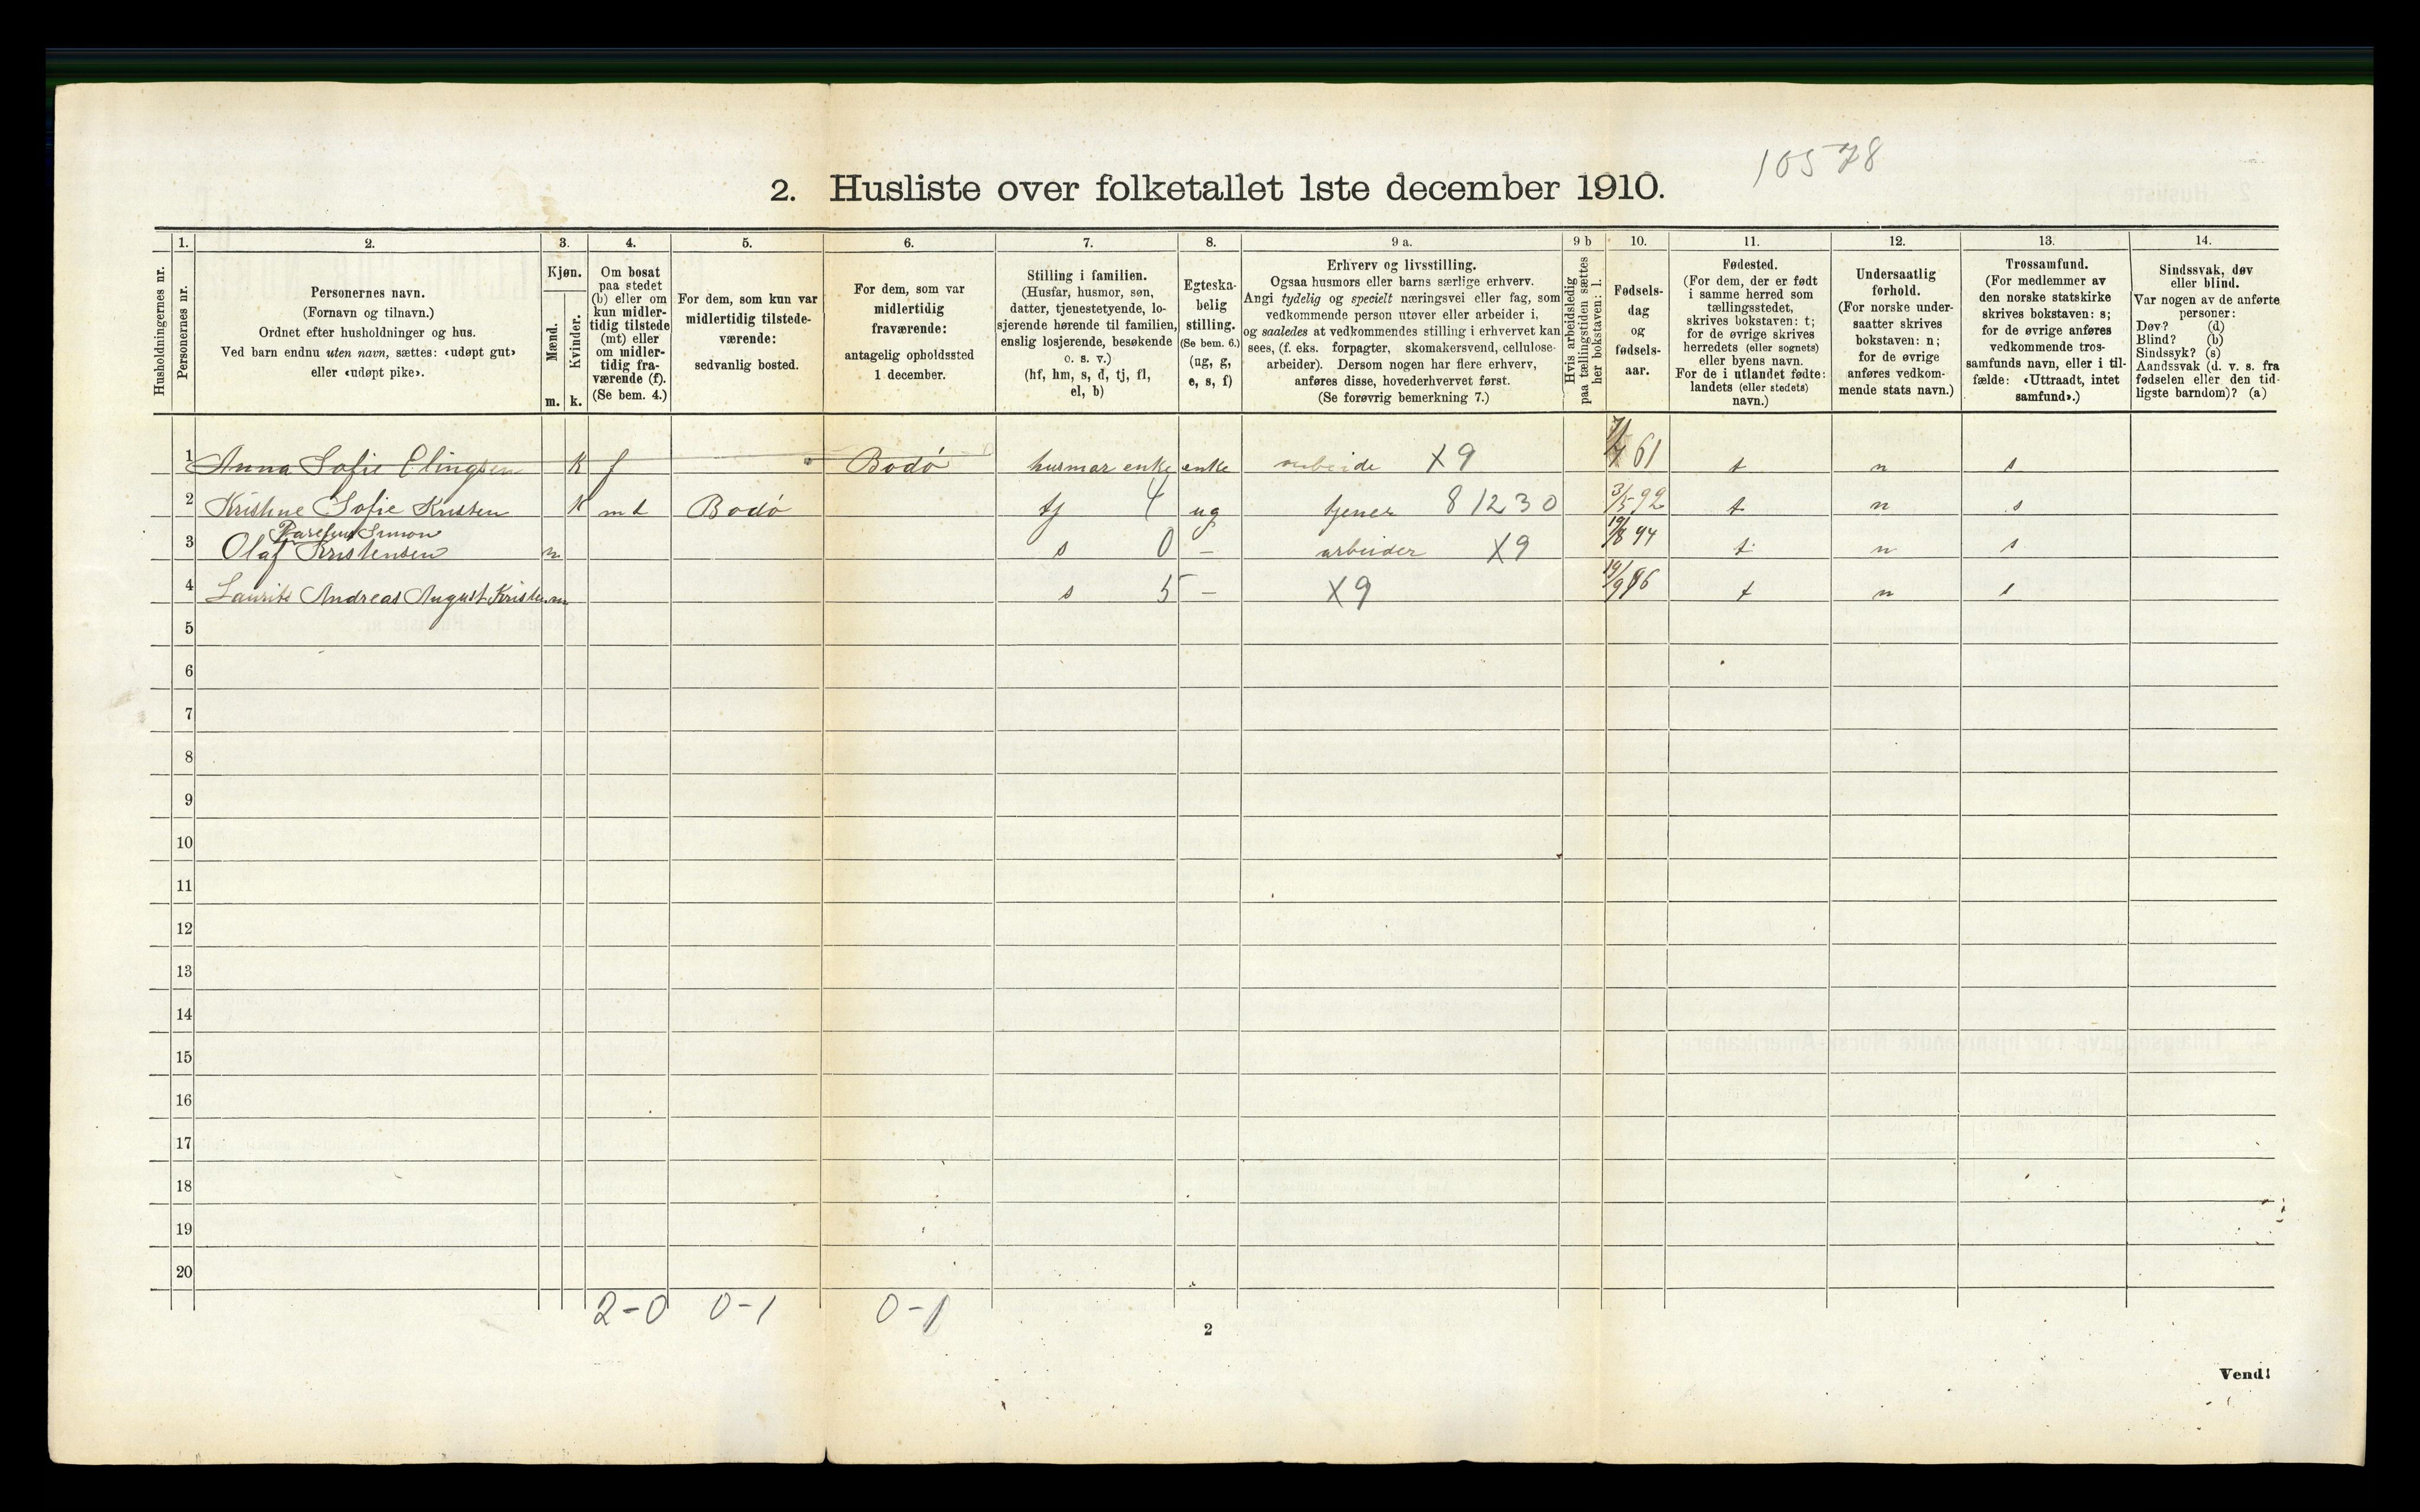 10578
2. Husliste over folketallet 1ste december 1910.
Husholdningernes nr.
1.
Personernes nr.
2.
Personernes navn.
(Fornavn og tilnavn.)
Ordnet efter husholdninger og hus.
Ved barn endnu uten navn, sættes: «udøpt gut»
eller «udøpt pike».
3.
Kjøn.
Mænd.
Kvinder.
m. k.
4.
Om bosat
paa stedet
(b) eller om
kun midler-
tidig tilstede
(mt) eller
om midler-
tidig fra-
værende (f).
(Se bem. 4.)
5.
For dem, som kun var
midlertidig tilstede-
værende:
sedvanlig bosted.
6.
For dem, som var
midlertidig
fraværende:
antagelig opholdssted
1 december.
7.
Stilling i familien.
(Husfar, husmor, søn,
datter, tjenestetyende, lo-
sjerende hørende til familien,
enslig losjerende, besøkende
o. s. v.)
(hf, hm, s, d, tj, fl,
el, b)
8.
Egteska-
belig
stilling.
(Se bem. 6.)
(ug, g,
e, s, f)
9 a.
Erhverv og livsstilling.
Ogsaa husmors eller barns særlige erhverv.
Angi tydelig og specielt næringsvei eller fag, som
vedkommende person utøver eller arbeider i,
og saaledes at vedkommendes stilling i erhvervet kan
sees, (f. eks. forpagter, skomakersvend, cellulose-
arbeider). Dersom nogen har flere erhverv,
anføres disse, hovederhvervet først.
(Se forøvrig bemerkning 7.)
9 b
Hvis arbeidsledig
paa tællingstiden sættes
her bokstaven: l.
10.
Fødsels-
dag
og
fødsels-
aar.
11.
Fødested.
(For dem, der er født
i samme herred som
tællingsstedet,
skrives bokstaven: t;
for de øvrige skrives
herredets (eller sognets)
eller byens navn.
For de i utlandet fødte:
landets (eller stedets)
navn.)
12.
Undersaatlig
forhold.
(For norske under-
saatter skrives
bokstaven: n;
for de øvrige
anføres vedkom-
mende stats navn.)
13.
Trossamfund.
(For medlemmer av
den norske statskirke
skrives bokstaven: s;
for de øvrige anføres
vedkommende tros-
samfunds navn, eller i til-
fælde: «Uttraadt, intet
samfund».)
14.
Sindssvak, døv
eller blind.
Var nogen av de anførte
personer:
Døv? (d)
Blind? (b)
Sindssyk? (s)
Aandssvak (d. v. s. fra
fødselen eller den tid-
ligste barndom)? (a)
1 Anna Sofie Elingsen K f Bodø husmor enke enke arbeide X9 61 t n s
2 Kristine Sofie Kristen K mt Bodø tj 4 ug tjener 81230 3/5 92 t n s
Simon
3 Olaf Kristensen m s 0 – arbeider X9 19/8 94 t n s
4 Laurits Andreas August Kristen m s 5 – X9 19/9 96 t n s
5
6
7
8
9
10
11
12
13
14
15
16
17
18
19
20
2-0 0-1 0-1
2
Vend!